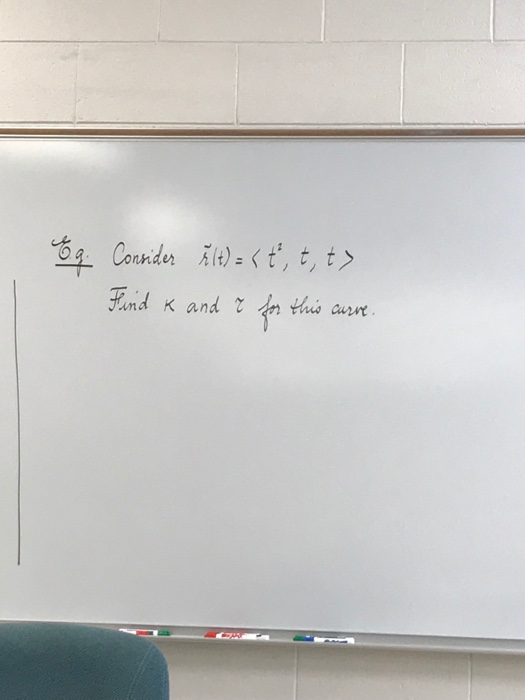 Eg. Consider r̃(t) = < t², t, t >
Find κ and τ for this curve.